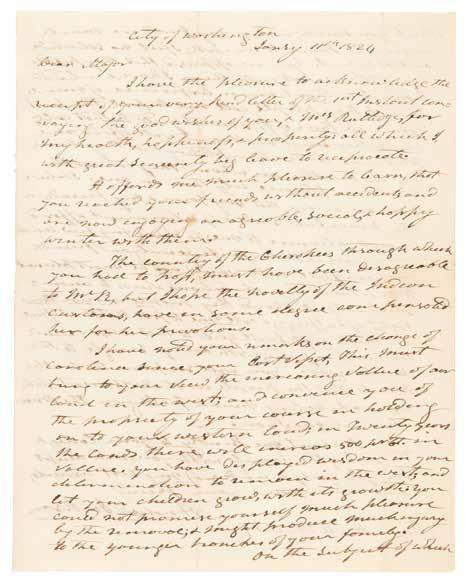 City of Washington
Janry 11th 1824
Dear Major
I have the pleasure to acknowledge the
receipt of your very kind letter of the instant con-
veying the good wishes of you, & Mrs Rutledge, for
my health, happiness, & prosperity all which I,
with great sincerety beg leave to reciprocate.
It affords me much pleasure to learn, that
you reached your friends without accident, and
are now enjoying an agreable, social, & happy
winter with them.
The country of the Cherokees through which
you had to pass, must have been disagreable
to Mrs R, but I hope the novelty of the Indian
customs, have in some degree compensated
her for her privations.
I have noted your remarks on the change of
carolina since your last visit, This must
bring to your view the increasing vallue of our
land in the west, and convince you of
the propriety of your course in holding
on to your western lands, in Twenty years
the lands there will increas 500 pr Ct in
vallue. you have displayed wisdom in your
determination to remain in the west, and
let your children grow, with its growth; you
could not promise yourself much pleasure
by the removal, & might produce much injury
to the younger branches of your family.
On the subject of which